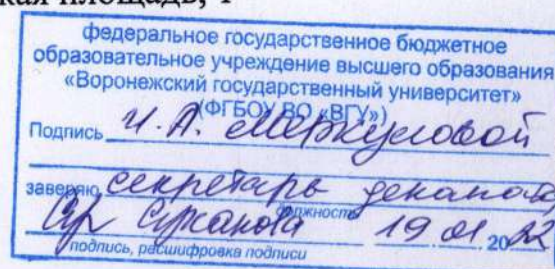 кая площадь, 1
федеральное государственное бюджетное
образовательное учреждение высшего образования
«Воронежский государственный университет»
(ФГБОУ ВО «ВГУ»)
Подпись И. А. Меркуловой
заверяю секретарь деканата
должность
Суханова 19 01 2022
подпись, расшифровка подписи